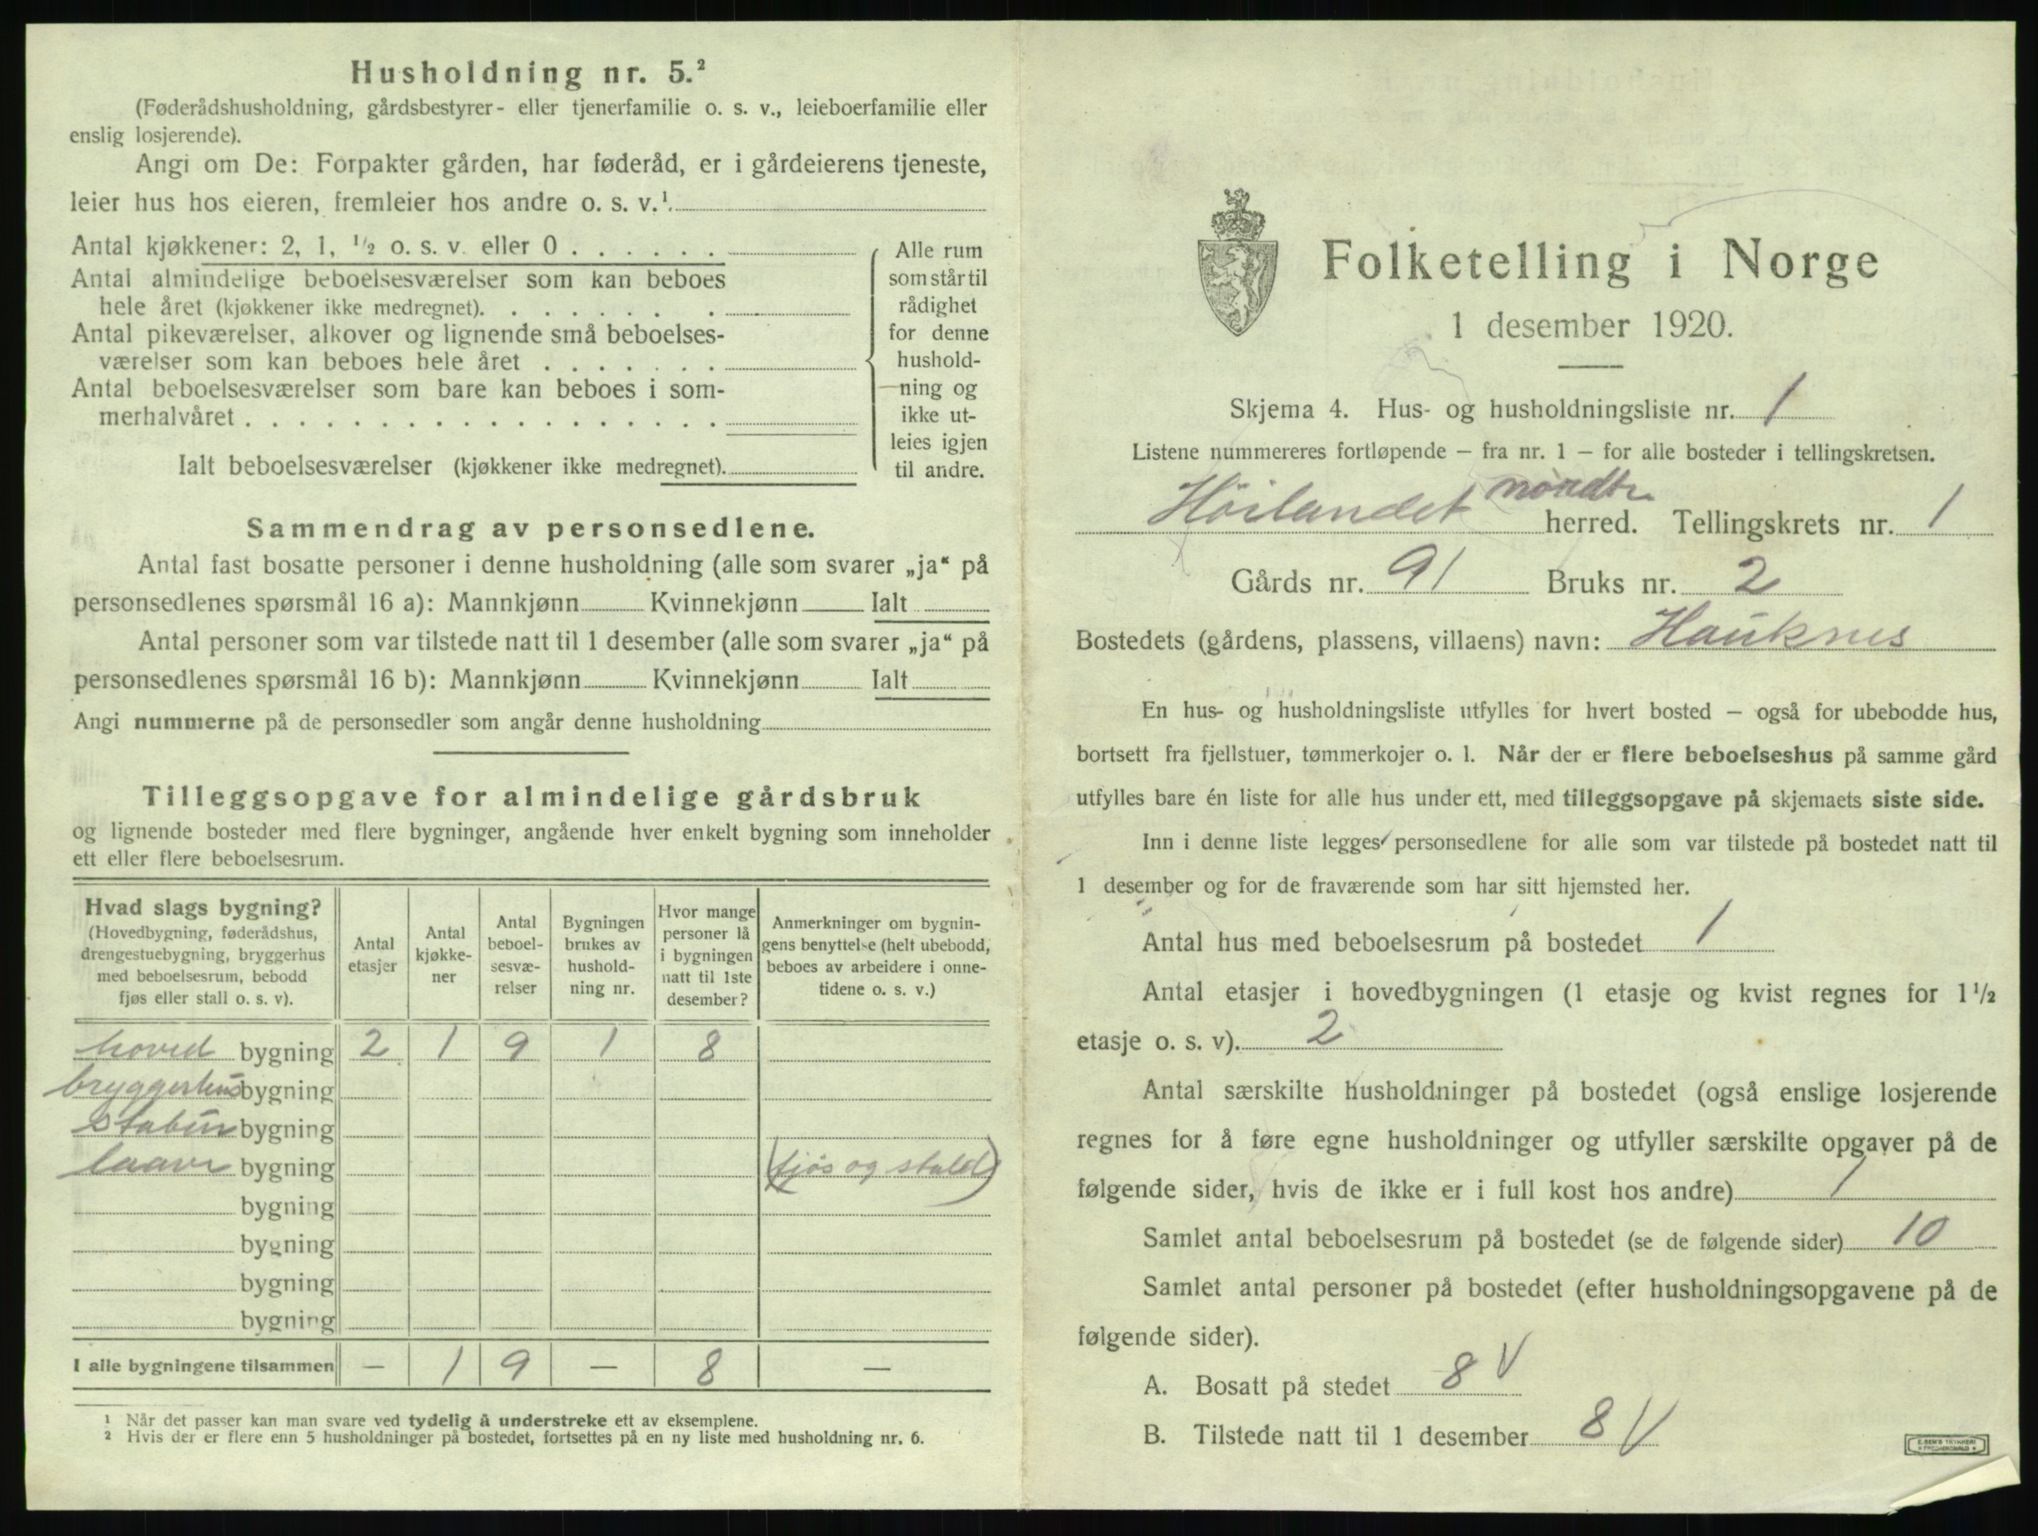 Husholdning nr. 5.²
(Føderådshusholdning, gårdsbestyrer- eller tjenerfamilie o. s. v., leieboerfamilie eller
enslig losjerende).
Angi om De: Forpakter gården, har føderåd, er i gårdeierens tjeneste,
leier hus hos eieren, fremleier hos andre o. s. v.¹
Antal kjøkkener: 2, 1, ½ o. s. v. eller 0
Antal almindelige beboelsesværelser som kan beboes
hele året (kjøkkener ikke medregnet).
Antal pikeværelser, alkover og lignende små beboelses-
værelser som kan beboes hele året
Antal beboelsesværelser som bare kan beboes i som-
merhalvåret
Ialt beboelsesværelser (kjøkkener ikke medregnet).
Alle rum
som står til
rådighet
for denne
hushold-
ning og
ikke ut-
leies igjen
til andre.
Sammendrag av personsedlene.
Antal fast bosatte personer i denne husholdning (alle som svarer „ja“ på
personsedlenes spørsmål 16 a): Mannkjønn Kvinnekjønn Ialt
Antal personer som var tilstede natt til 1 desember (alle som svarer „ja“ på
personsedlenes spørsmål 16 b): Mannkjønn Kvinnekjønn Ialt
Angi nummerne på de personsedler som angår denne husholdning
Tilleggsopgave for almindelige gårdsbruk
og lignende bosteder med flere bygninger, angående hver enkelt bygning som inneholder
ett eller flere beboelsesrum.
Hvad slags bygning?
(Hovedbygning, føderådshus,
drengestuebygning, bryggerhus
med beboelsesrum, bebodd
fjøs eller stall o. s. v).
Antal
etasjer
Antal
kjøkke-
ner
Antal
beboel-
sesvæ-
relser
Bygningen
brukes av
hushold-
ning nr.
Hvor mange
personer lå
i bygningen
natt til 1ste
desember?
Anmerkninger om bygnin-
gens benyttelse (helt ubebodd,
beboes av arbeidere i onne-
tidene o. s. v.)
hoved bygning 2 1 9 1 8
bryggerhus bygning
stabur bygning
laave bygning (fjøs og stald)
bygning
bygning
bygning
bygning
I alle bygningene tilsammen — 1 9 — 8 —
¹ Når det passer kan man svare ved tydelig å understreke ett av eksemplene.
² Hvis der er flere enn 5 husholdninger på bostedet, fortsettes på en ny liste med husholdning nr. 6.
Folketelling i Norge
1 desember 1920.
Skjema 4. Hus- og husholdningsliste nr. 1
Listene nummereres fortløpende – fra nr. 1 – for alle bosteder i tellingskretsen.
Höilandet nordtr. herred. Tellingskrets nr. 1
Gårds nr. 91 Bruks nr. 2
Bostedets (gårdens, plassens, villaens) navn: Hauknes
En hus- og husholdningsliste utfylles for hvert bosted – også for ubebodde hus,
bortsett fra fjellstuer, tømmerkojer o. l. Når der er flere beboelseshus på samme gård
utfylles bare én liste for alle hus under ett, med tilleggsopgave på skjemaets siste side.
Inn i denne liste legges personsedlene for alle som var tilstede på bostedet natt til
1 desember og for de fraværende som har sitt hjemsted her.
Antal hus med beboelsesrum på bostedet 1
Antal etasjer i hovedbygningen (1 etasje og kvist regnes for 1½
etasje o. s. v). 2
Antal særskilte husholdninger på bostedet (også enslige losjerende
regnes for å føre egne husholdninger og utfyller særskilte opgaver på de
følgende sider, hvis de ikke er i full kost hos andre) 1
Samlet antal beboelsesrum på bostedet (se de følgende sider) 10
Samlet antal personer på bostedet (efter husholdningsopgavene på de
følgende sider).
A. Bosatt på stedet 8 V
B. Tilstede natt til 1 desember 8 V